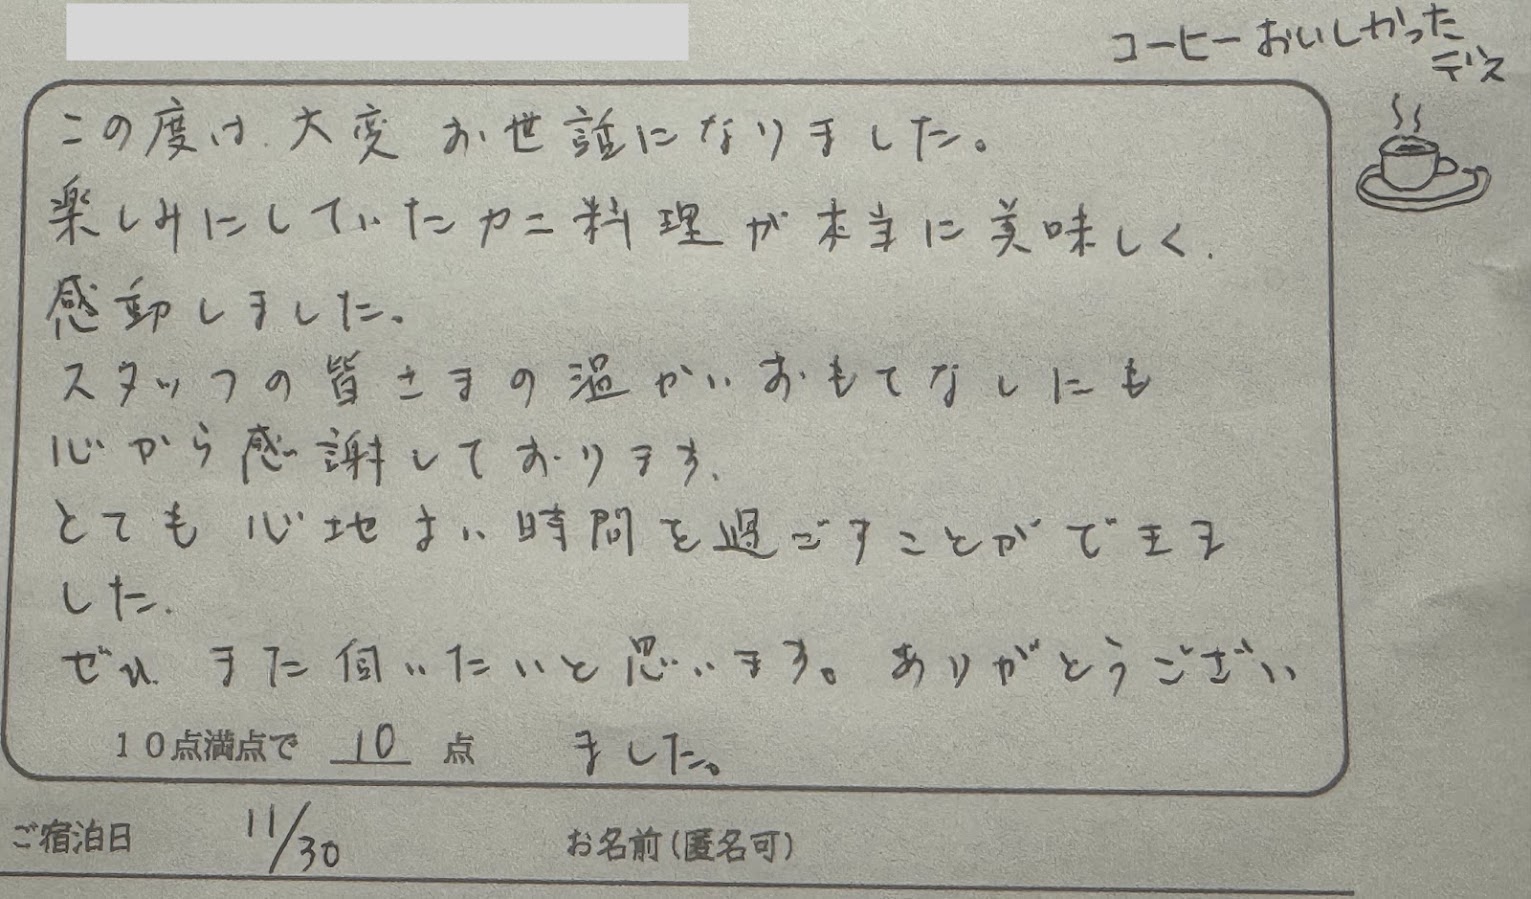 コーヒーおいしかった
デス
この度は、大変お世話になりました。
楽しみにしていたカニ料理が本当に美味しく、
感動しました。
スタッフの皆さまの温かいおもてなしにも
心から感謝しております。
とても心地よい時間を過ごすことができま
した。
ぜひまた伺いたいと思います。ありがとうござい
10点満点で 10 点 ました。
ご宿泊日 11/30 お名前(匿名可)